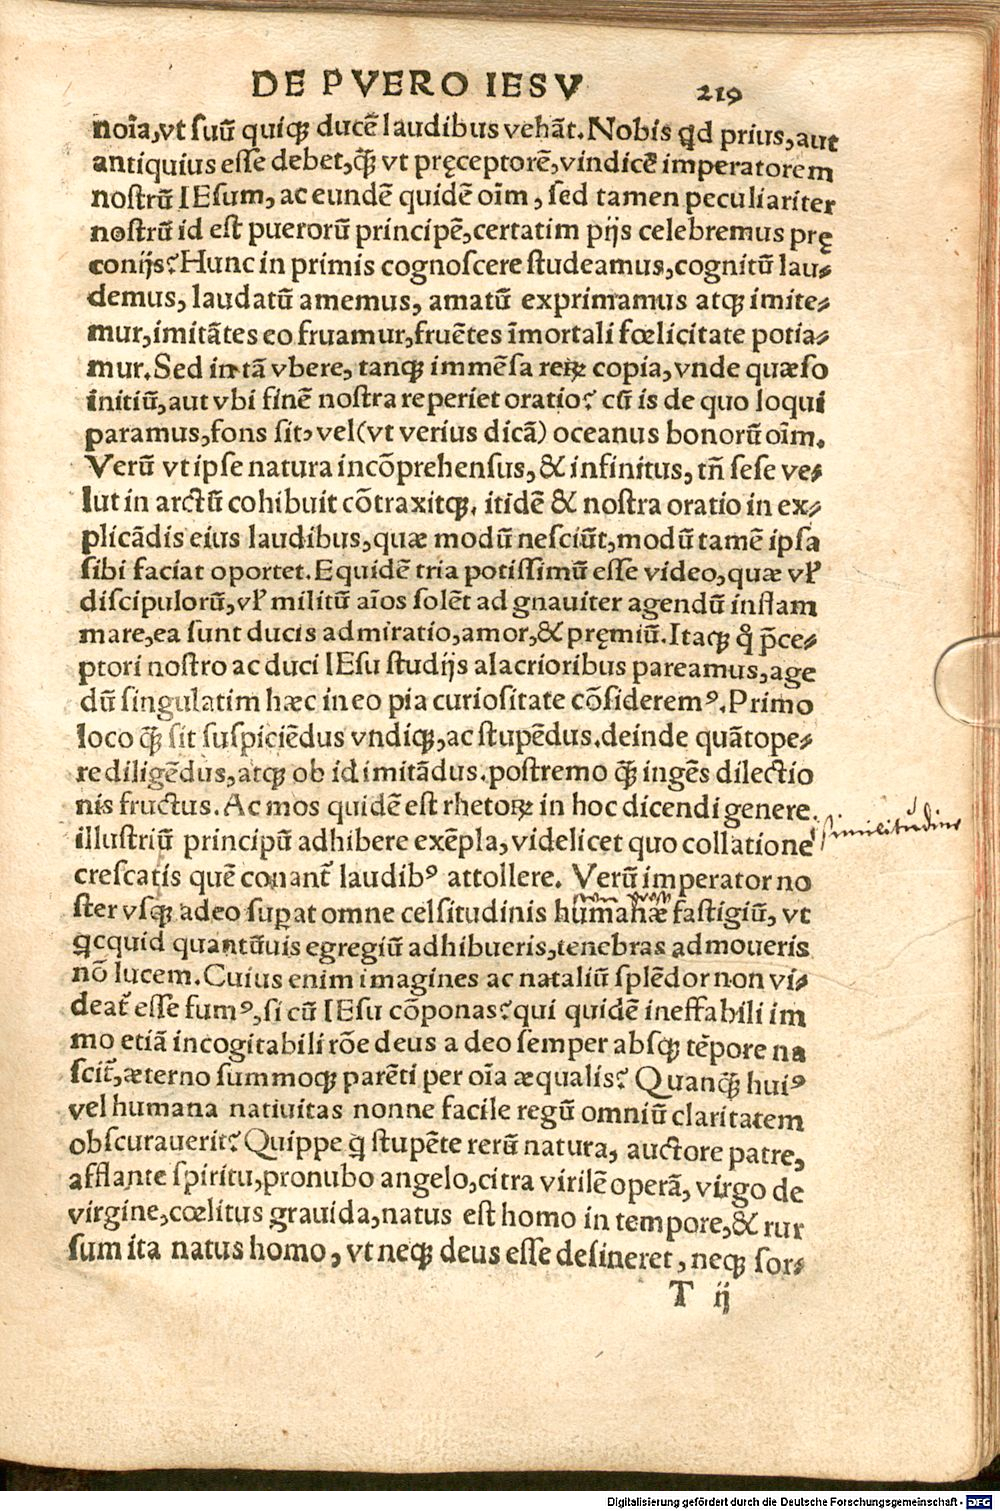 DE PVERO IESV 219
noĩa, vt suũ quiqꝫ ducẽ laudibus vehãt. Nobis qd prius, aut
antiquius esse debet, q̃ꝫ vt pręceptorẽ, vindicẽ imperatorem
nostrũ IEsum, ac eundẽ quidẽ oĩm, sed tamen peculiariter
nostrũ id est puerorũ principẽ, certatim pijs celebremus prę
conijs? Hunc in primis cognoscere studeamus, cognitũ lau-
demus, laudatũ amemus, amatũ exprimamus atqꝫ imite-
mur, imitãtes eo fruamur, fruẽtes ĩmortali fœlicitate potia-
mur. Sed in tã vbere, tanqꝫ immẽsa reꝝ copia, vnde quæso
initiũ, aut vbi finẽ nostra reperiet oratio? cũ is de quo loqui
paramus, fons sit, vel (vt verius dicã) oceanus bonorũ oĩm.
Verũ vt ipse natura incõprehensus, & infinitus, tñ sese ve-
lut in arctũ cohibuit cõtraxitqꝫ. itidẽ & nostra oratio in ex-
plicãdis eius laudibus, quæ modũ nesciũt, modũ tamẽ ipsa
sibi faciat oportet. Equidẽ tria potissimũ esse video, quæ vł
discipulorũ, vł militũ aĩos solẽt ad gnauiter agendũ inflam
mare, ea sunt ducis admiratio, amor, & pręmiũ. Itaqꝫ q̊ p̃ce-
ptori nostro ac duci IEsu studijs alacrioribus pareamus, age
dũ singulatim hæc in eo pia curiositate cõsideremꝰ. Primo
loco q̃ꝫ sit suspiciẽdus vndiqꝫ, ac stupẽdus. deinde quãtope-
re diligẽdus, atqꝫ ob id imitãdus. postremo q̃ꝫ ingẽs dilectio
nis fructus. Ac mos quidẽ est rhetoꝝ in hoc dicendi genere
illustriũ principũ adhibere exẽpla, videlicet quo collatione
similitudine
crescat is quẽ conant̃ laudibꝰ attollere. Verũ imperator no
ster vsqꝫ adeo sup̱at omne celsitudinis humanæ fastigiũ, vt
qcquid quantũuis egregiũ adhibueris, tenebras admoueris
nõ lucem. Cuius enim imagines ac nataliũ splẽdor non vi-
deat̃ esse fumꝰ, si cũ IEsu cõponas? qui quidẽ ineffabili im
mo etiã incogitabili rõe deus a deo semper absqꝫ tẽpore na
scit̃, æterno summoqꝫ parẽti per oĩa æqualis? Quanq̃ꝫ huiꝰ
vel humana natiuitas nonne facile regũ omniũ claritatem
obscurauerit? Quippe q̃ stupẽte rerũ natura, auctore patre,
afflante spiritu, pronubo angelo, citra virilẽ operã, virgo de
virgine, cœlitus grauida, natus est homo in tempore, & rur
sum ita natus homo, vt neqꝫ deus esse desineret, neqꝫ sor-
T ij
Digitalisierung gefördert durch die Deutsche Forschungsgemeinschaft - DFG